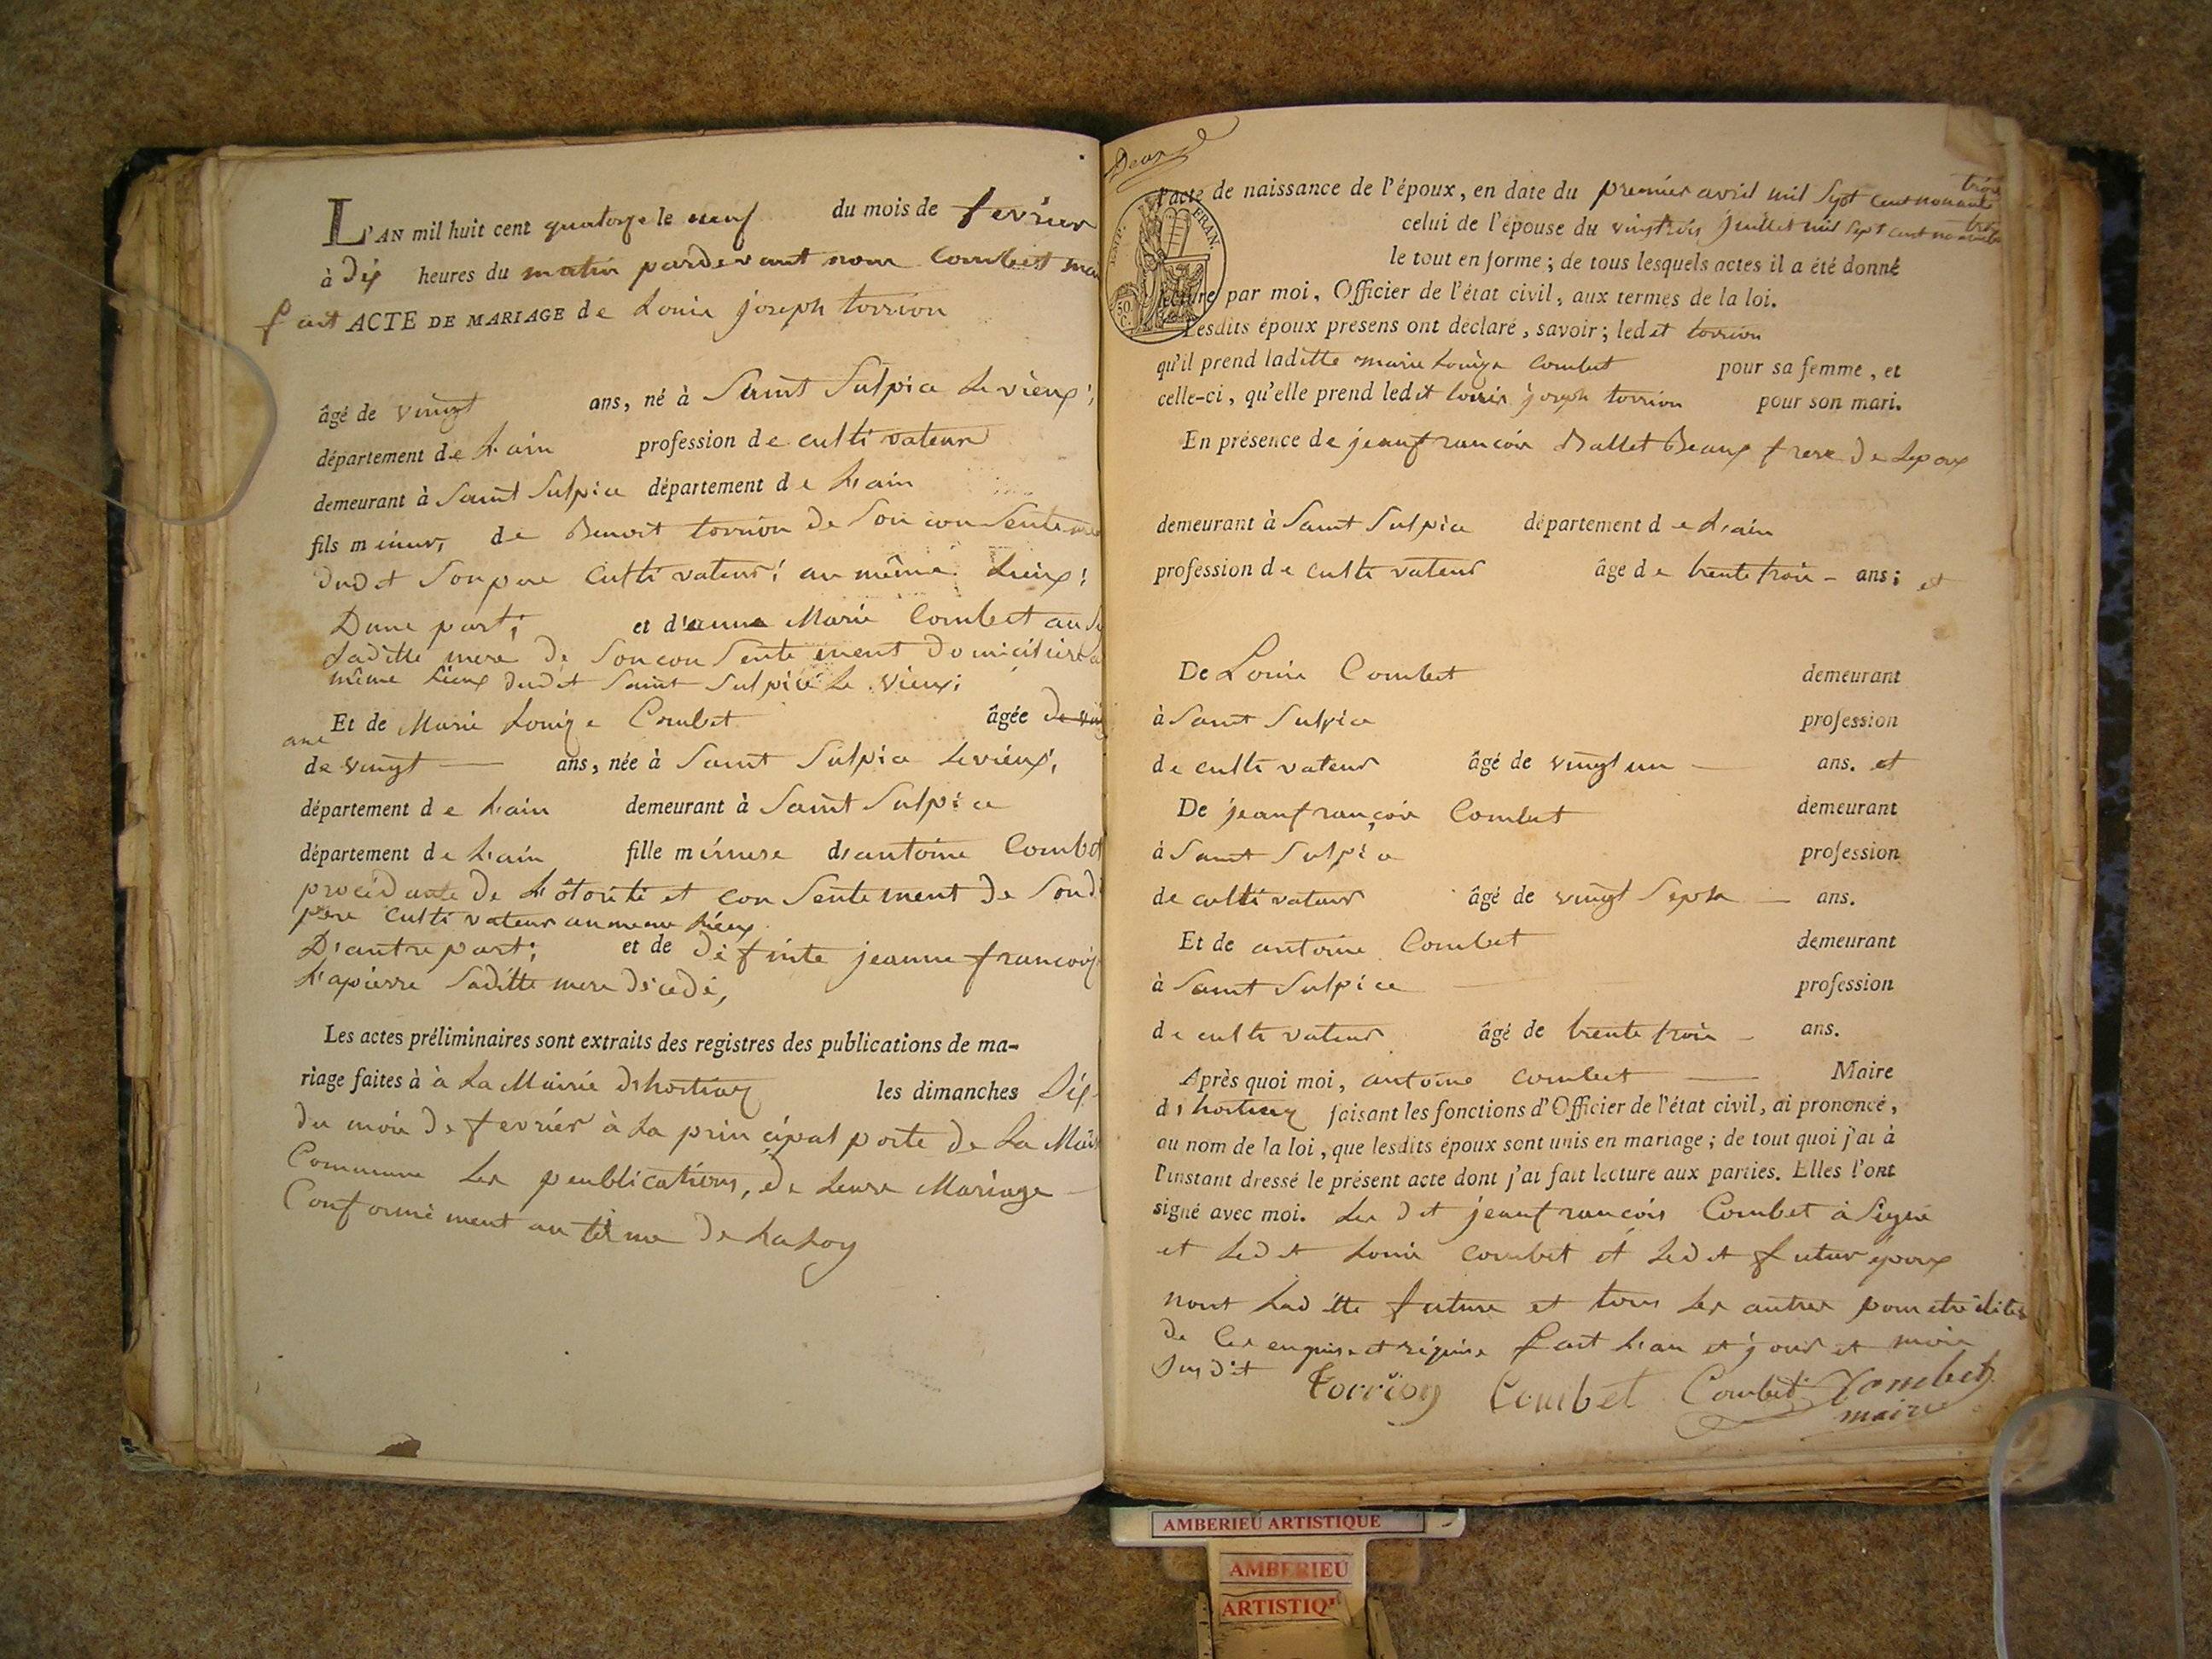 L'AN mil huit cent quatorze le neuf du mois de fevrier
à dix heures du matin pardevant nous Combet
fait ACTE DE MARIAGE de Louis joseph torrion
âgé de vingt ans, né à Saint Sulpice Levieux;
département de L'ain profession de cultivateur
demeurant à Saint Sulpice département de L'ain
fils mineur, de Benoit torrion de Son consenteme
dudet Son pere Cultivateur; au même Lieux;
Dune part; et d'anne Marie Combet
Saditte mere de Son consentement domiciliere
même Lieux dudet Saint Sulpice Le vieux;
Et de Marie Louize Combet âgée
de vingt ans, née à Saint Sulpice Levieux;
département de L'ain demeurant à Saint Sulpice
département de L'ain fille mineure d'antoine Combet
procédante de L'otorité et consentement de Sond
père Cultivateur au meme Lieux
D'autre part; et de défunte jeanne francoiz
Lapierre Saditte mere décédé,
Les actes préliminaires sont extraits des registres des publications de ma-
riage faites à à La Mairie d'hostiaz les dimanches Dix
du mois de fevrier à La principal porte de La Mais
Commune Les peublications, de Leurs Mariage
Conformément au terme de La Loy
l'acte de naissance de l'époux, en date du premier avril mil Sept cent nonante trois
celui de l'épouse du vingtrois juillet mil Sept cent nonante trois
le tout en forme; de tous lesquels actes il a été donné
lecture par moi, Officier de l'état civil, aux termes de la loi.
Lesdits époux présens ont déclaré, savoir; ledet torrion
qu'il prend laditte marie Louize Combet pour sa femme, et
celle-ci, qu'elle prend ledet Louis joseph torrion pour son mari.
En présence de jeanfrancois Ballet Beaux frere de Lepoux
demeurant à Saint Sulpice département de L'ain
profession de cultivateur âge de trente trois - ans; et
De Louis Combet demeurant
à Saint Sulpice profession
de cultivateur âgé de vingt un ans. et
De jeanfrançois Combet demeurant
à Saint Sulpice profession
de cultivateur âgé de vingt Septs ans.
Et de antoine Combet demeurant
à Saint Sulpice profession
de cultivateur âgé de trente trois ans.
Après quoi moi, antoine combet Maire
d'hostiaz faisant les fonctions d'Officier de l'état civil, ai prononcé,
au nom de la loi, que lesdits époux sont unis en mariage; de tout quoi j'ai à
l'instant dressé le présent acte dont j'ai fait lecture aux parties. Elles l'ont
signé avec moi. Les det jeanfrancois Combet à Signé
et Ledet Louis combet et Ledet futur epoux
nont Laditte future et tous Les autres pour etre
de Ce enquis et requise fait L'an et jour et mois
Susdit Torrion Combet Combet Combet
maire
EMP. FRAN.
50 C.
AMBERIEU ARTISTIQUE
AMBERIEU
ARTISTIQ